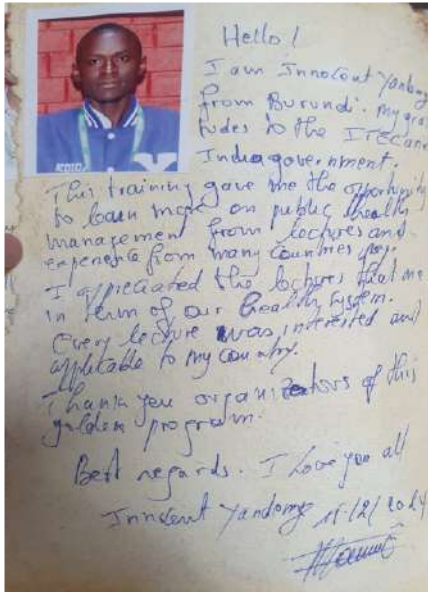 Hello !
I am Innocent Yandomy
from Burundi. My gra
tudes to the ITEC and
India government.
This training gave me the opportunity
to learn more on public health
management from lectures and
experience from many countries
I appreciated the lectures that
in term of our health system.
Every lecture was interested and
applicable to my country.
Thank you organizators of this
golden program.
Best regards. I love you all
Innocent Yandomy 15/2/2024